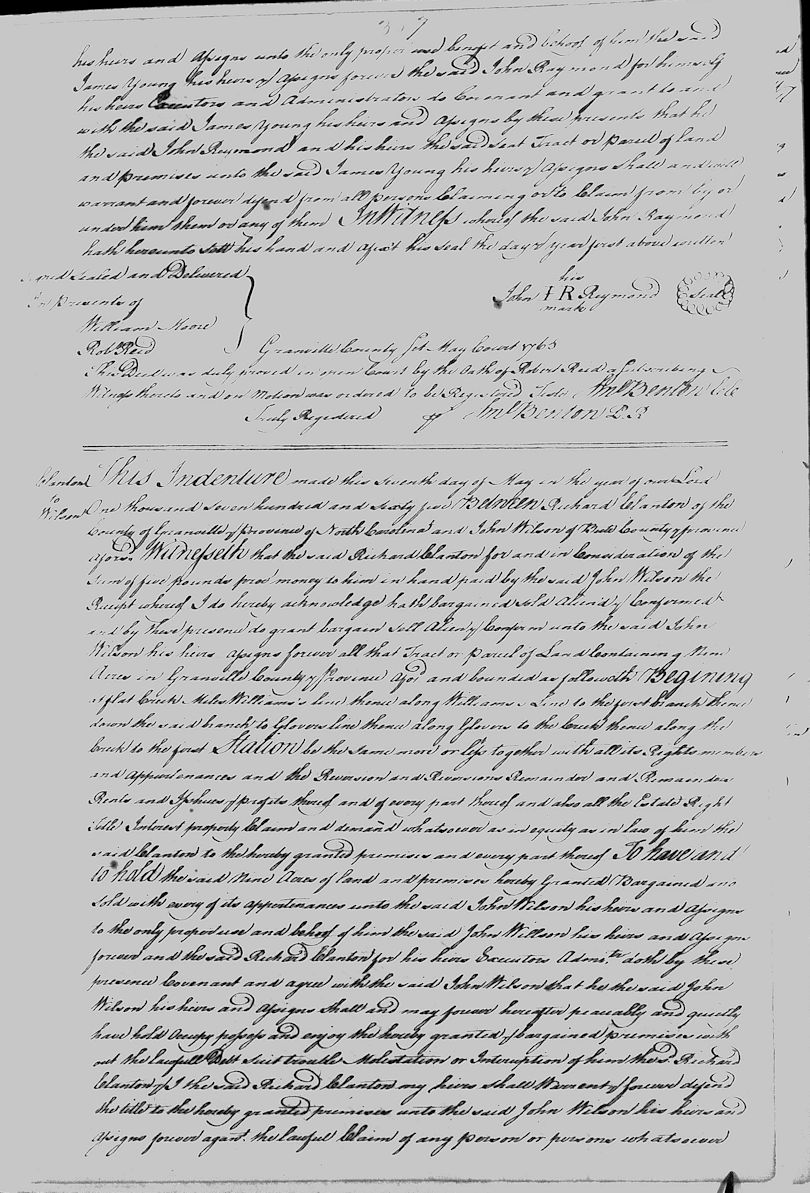 his heirs and Assigns unto the only proper use benefit and behoof of him the said
James Young his heirs & Assigns forever the said John Raymond for himself
his heirs Executors and Administrators do Covenant and grant to and
with the said James Young his heirs and Assigns by these presents that he
the said John Raymond and his heirs the said Tract or parcel of land
and premises unto the said James Young his heirs & Assigns Shall and will
warrant and forever defend from all persons Claiming or to Claim from by or
under him them or any of them In Witness whereof the said John Raymond
hath hereunto Sett his hand and Afixt his Seal the day & year first above written
Signed Sealed and Delivered
In presents of
his
John I R Raymond Seal
mark
William Moore
Robt. Reed
Granville County Sct May Court 1765
This Deed was duly proved in open Court by the Oath of Robert Reed a Subscribing
Witness thereto and on Motion was ordered to be Registered Teste Saml Benton Clk
Truly Registered Saml Benton P.R
Clanton
to
Wilson
This Indenture made this Seventh day of May in the year of our Lord
One thousand Seven hundred and Sixty five Between Richard Clanton of the
County of Granville & Province of North Carolina and John Wilson of Bute County & province
Aforsd. Witnesseth that the said Richard Clanton for and in Consideration of the
Sum of five pounds proc money to him in hand paid by the said John Wilson the
Receipt whereof I do hereby acknowledge hath bargained Sold Aliend & Confirmed
and by these presence do grant bargain Sell Alien & Confirm unto the said John
Wilson his heirs Assigns forever all that Tract or parcel of Land Containing Nine
Acres in Granville County & Province Aforsd and bounded as followeth Begining
at flat Creek Miles Williams's line thence along Williams's Line to the first branch thence
down the said branch to Glovers line thence along Glovers to the Creek thence along the
Creek to the first Station be the Same more or less together with all its Rights members
and Appurtenances and the Reversion and Reversions Remainder and Remainders
Rents and Isshues & profits thereof and of every part thereof and also all the Estate Right
Title Interest property Claim and demand whatsoever as in equity as in law of him the
said Clanton to the hereby granted premises and every part thereof To have and
to hold the said Nine Acres of land and premises hereby Granted Bargained and
Sold with every of its appurtenances unto the said John Wilson his heirs and Assigns
to the only proper use and behoof of him the said John Willson his heirs and Assigns
forever and the said Richard Clanton for his heirs Executors Admrs. doth by these
presence Covenant and agree with the said John Wilson that he the said John
Wilson his heirs and Assigns Shall and may forever hereafter peaceably and quietly
have hold Occupy possess and enjoy the hereby granted & bargained premises with
out the lawfull Dett Suit trouble Molistation or Interuption of him the sd. Richard
Clanton & I the said Richard Clanton my heirs Shall Warrent & forever defend
the title to the hereby granted premises unto the said John Wilson his heirs and
Assigns forever agant. the lawful Claim of any person or persons whatsoever